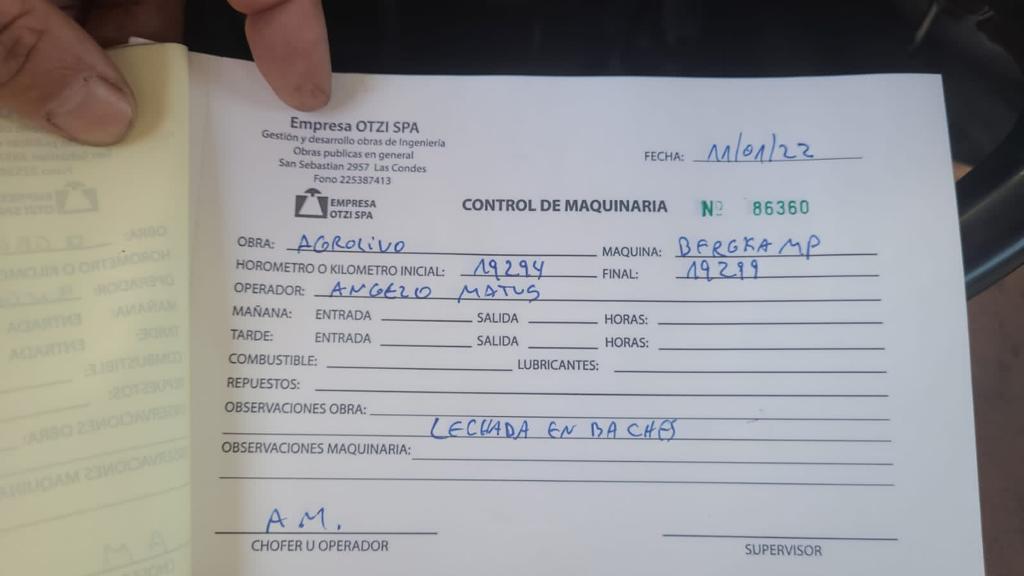 Empresa OTZI SPA
Gestión y desarrollo obras de Ingeniería
Obras publicas en general
San Sebastian 2957 Las Condes
Fono 225387413
EMPRESA
OTZI SPA
FECHA: 11/01/22
CONTROL DE MAQUINARIA Nº 86360
OBRA: AGROLIVO MAQUINA: BERGKAMP
HOROMETRO O KILOMETRO INICIAL: 19294 FINAL: 19299
OPERADOR: ANGELO MATUS
MAÑANA: ENTRADA SALIDA HORAS:
TARDE: ENTRADA SALIDA HORAS:
COMBUSTIBLE: LUBRICANTES:
REPUESTOS:
OBSERVACIONES OBRA:
LECHADA EN BACHES
OBSERVACIONES MAQUINARIA:
A M.
CHOFER U OPERADOR
SUPERVISOR